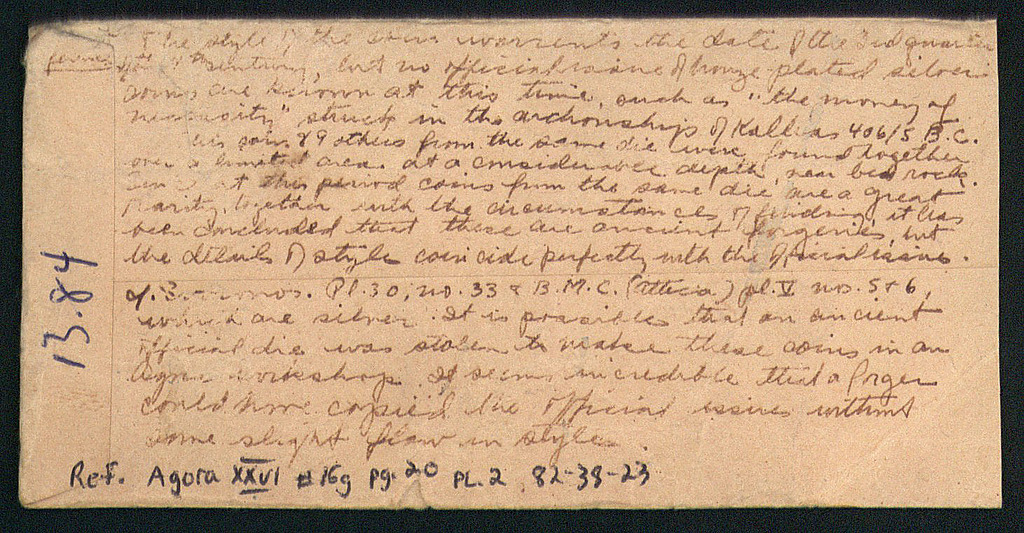 The style of the coins warrents the date of the 3rd quarter
of the 4th century, but no official issue of bronze plated silver
coins are known at this time, such as "the money of
necessity" struck in the archonships of Kallias 406/5 B.C.
This coin & 9 others from the same die were found together
over a limited area at a considerable depth, near bed rock.
Since at this period coins from the same die are a great
rarity, together with the circumstances of finding it has
been concluded that these are ancient forgeries, but
the details of style coincide perfectly with the official issue.
cf. Svoronos. Pl. 30, no. 33 & B.M.C. (Attica) pl. V nos. 5 & 6,
which are silver. It is possible that an ancient
official die was stolen to make these coins in an
Agora workshop. It seems incredible that a forger
could have copied the official issues without
some slight flaw in style.
Ref. Agora XXVI #16g pg. 20 PL. 2 82-38-23
13.84